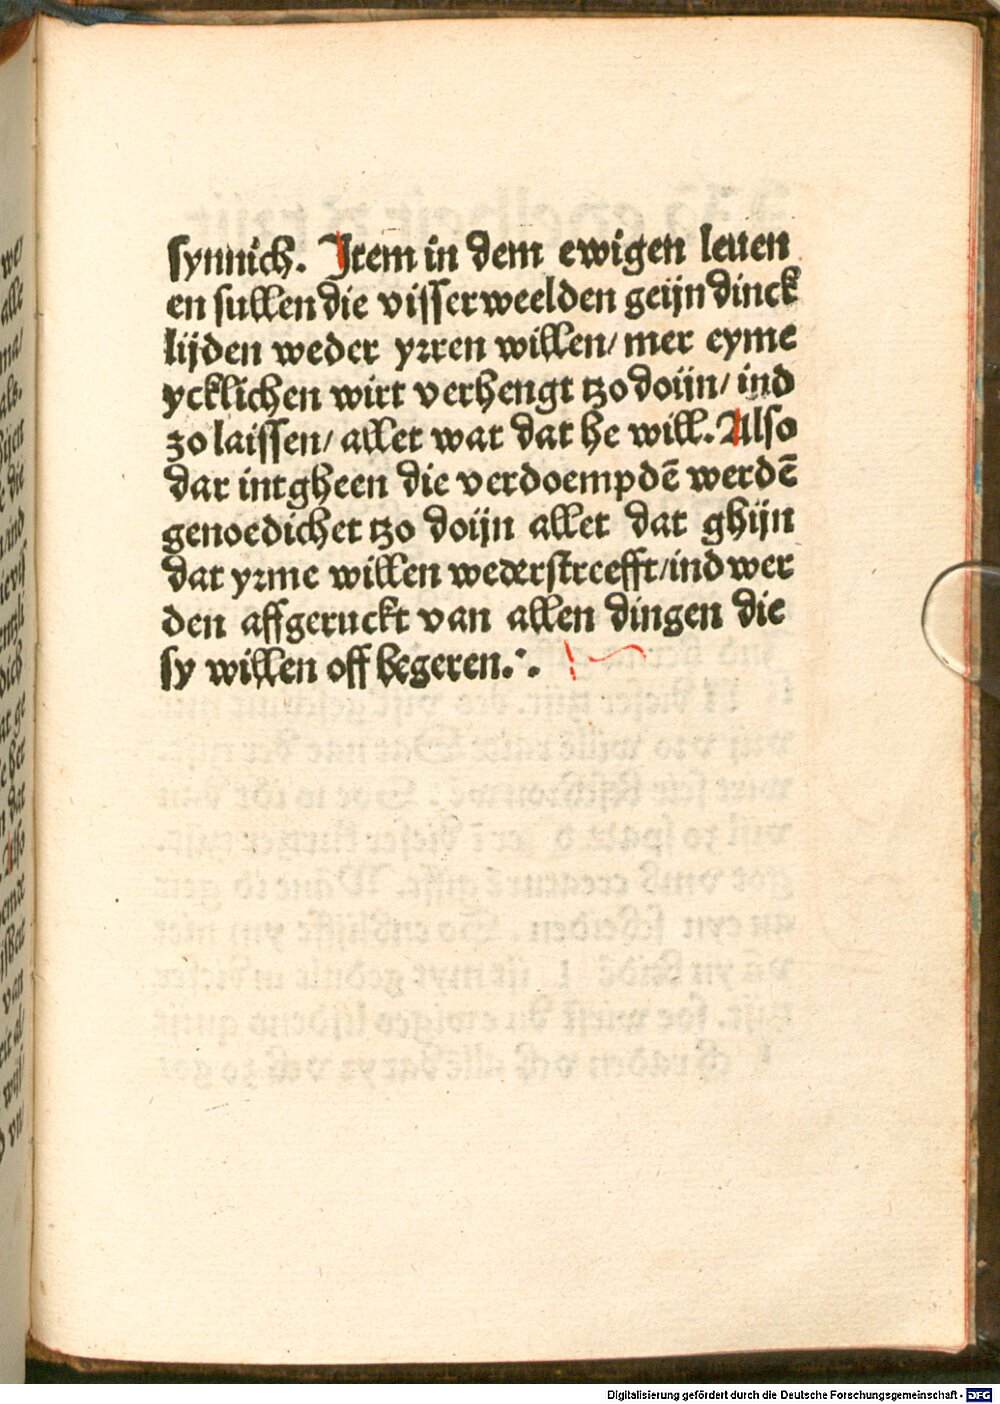 synnich. Item in dem ewigen leuen
en sullen die visserweelden geijn dinck
lijden weder yꝛren willen/ mer eyme
ycklichen wirt verhengt tzo doijn/ ind
zo laissen/ allet wat dat he will. Also
dar intgheen die verdoempdē werdē
genoedichet tzo doijn allet dat ghijn
dat yꝛme willen wederstreefft/ ind wer
den affgeruckt van allen dingen die
sy willen off begeren.·.
Digitalisierung gefördert durch die Deutsche Forschungsgemeinschaft - DFG